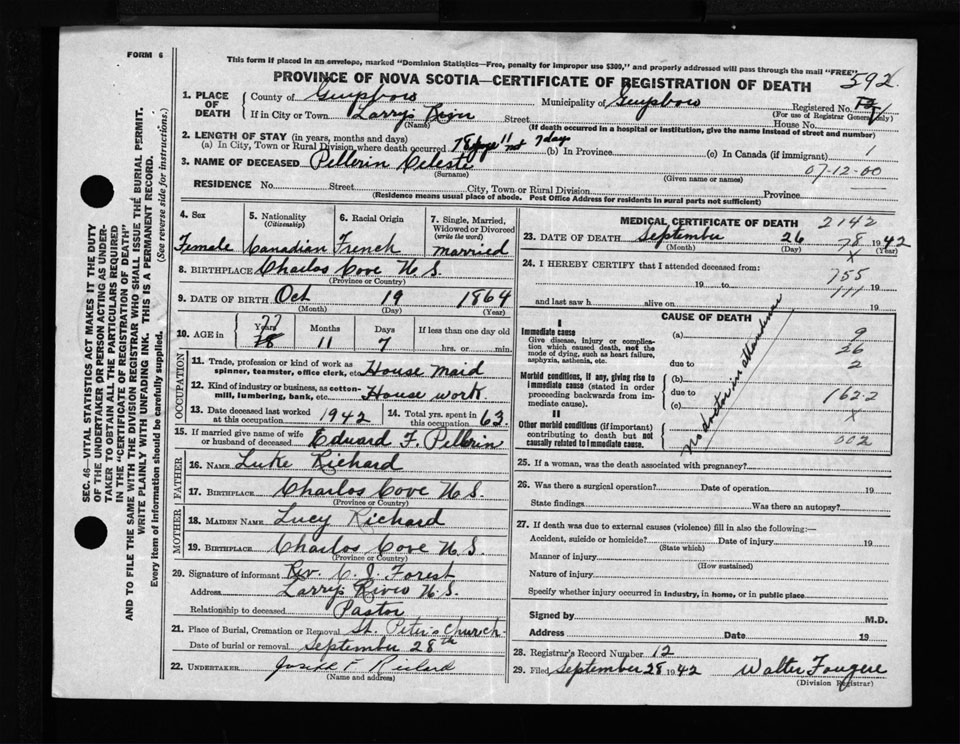 FORM 6
This form if placed in an envelope, marked "Dominion Statistics—Free, penalty for improper use $300," and properly addressed will pass through the mail "FREE"
PROVINCE OF NOVA SCOTIA—CERTIFICATE OF REGISTRATION OF DEATH
592
1. PLACE OF DEATH
County of Guysboro
Municipality of Guysboro
Registered No.
(For use of Registrar General only)
If in City or Town Larrys River
(Name)
Street
House No.
(If death occurred in a hospital or institution, give the name instead of street and number)
2. LENGTH OF STAY (in years, months and days)
(a) In City, Town or Rural Division where death occurred 78 11 7 days (b) In Province (c) In Canada (if immigrant) 1
3. NAME OF DECEASED Pellerin Celeste 07-12-00
(Surname) (Given name or names)
RESIDENCE No. Street City, Town or Rural Division Province
(Residence means usual place of abode. Post Office Address for residents in rural parts not sufficient)
4. Sex
Female
5. Nationality
(Citizenship)
Canadian
6. Racial Origin
French
7. Single, Married, Widowed or Divorced
(write the word)
Married
8. BIRTHPLACE Charlos Cove N.S.
(Province or Country)
9. DATE OF BIRTH Oct 19 1864
(Month) (Day) (Year)
10. AGE in
Years Months Days If less than one day old
77
78 11 7 hrs. or min.
OCCUPATION
11. Trade, profession or kind of work as spinner, teamster, office clerk, etc. House maid
12. Kind of industry or business, as cotton-mill, lumbering, bank, etc. House work
13. Date deceased last worked at this occupation 1942
14. Total yrs. spent in this occupation 63
15. If married give name of wife or husband of deceased Edward F. Pellerin
FATHER
16. NAME Luke Richard
17. BIRTHPLACE Charlos Cove N.S.
(Province or Country)
MOTHER
18. MAIDEN NAME Lucy Richard
19. BIRTHPLACE Charlos Cove N.S.
(Province or Country)
20. Signature of informant Rev. C. J. Forest
Address Larrys River N.S.
Relationship to deceased Pastor
21. Place of Burial, Cremation or Removal St. Peter's Church
Date of burial or removal September 28th
22. UNDERTAKER
(Name and address)
MEDICAL CERTIFICATE OF DEATH 2142
23. DATE OF DEATH September 26 1942
(Month) (Day) (Year)
78
X
24. I HEREBY CERTIFY that I attended deceased from:
755
19 to 19
111
and last saw h alive on 19
CAUSE OF DEATH
I
Immediate cause
Give disease, injury or complication which caused death, not the mode of dying, such as heart failure, asphyxia, asthenia, etc.
(a) 9
26
due to 2
Morbid conditions, if any, giving rise to immediate cause (stated in order proceeding backwards from immediate cause).
(b)
due to
(c) 162-2
X
II
Other morbid conditions (if important) contributing to death but not causally related to immediate cause.
002
No doctor in attendance
25. If a woman, was the death associated with pregnancy?
26. Was there a surgical operation? Date of operation 19
State findings Was there an autopsy?
27. If death was due to external causes (violence) fill in also the following:—
Accident, suicide or homicide? Date of injury 19
(State which)
Manner of injury
(How sustained)
Nature of injury
Specify whether injury occurred in industry, in home, or in public place
Signed by M.D.
Address Date 19
28. Registrar's Record Number 12
29. Filed September 28 1942 Walter Fougere
(Division Registrar)
SEC. 46—VITAL STATISTICS ACT MAKES IT THE DUTY
OF THE UNDERTAKER OR PERSON ACTING AS UNDER-
TAKER TO OBTAIN ALL THE PARTICULARS REQUIRED
IN THE "CERTIFICATE OF REGISTRATION OF DEATH"
AND TO FILE THE SAME WITH THE DIVISION REGISTRAR WHO SHALL ISSUE THE BURIAL PERMIT.
WRITE PLAINLY WITH UNFADING INK. THIS IS A PERMANENT RECORD.
Every item of information should be carefully supplied. (See reverse side for instructions.)